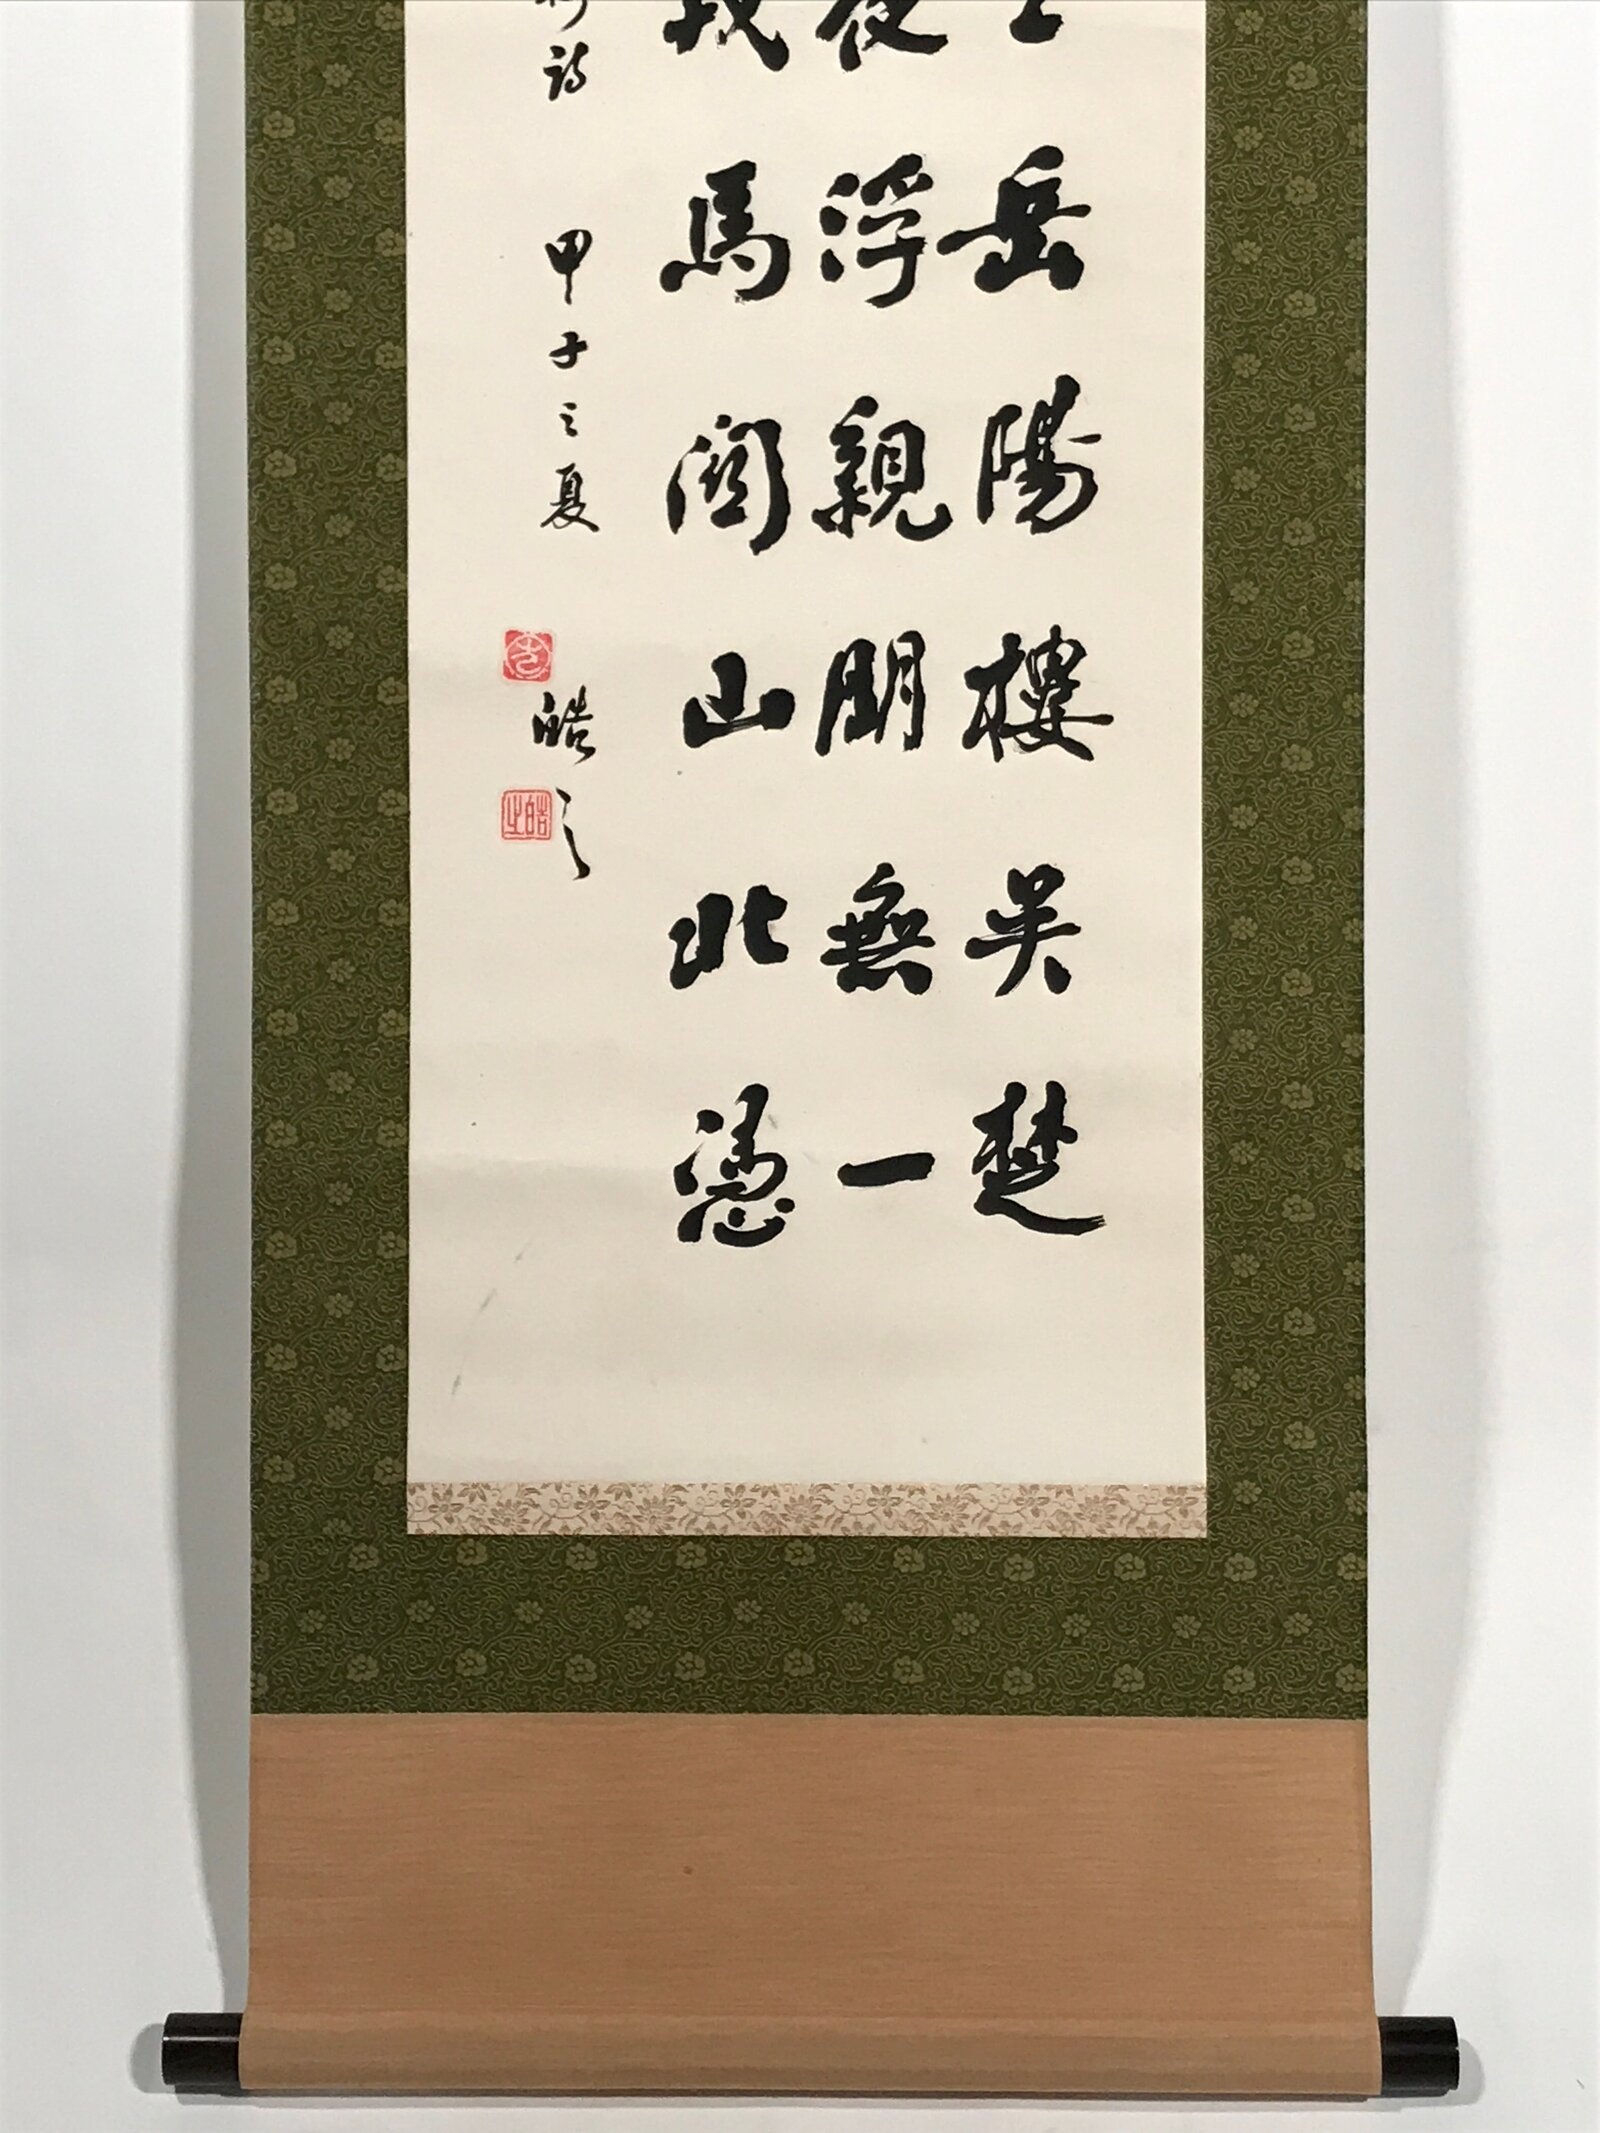 上岳陽樓吳楚
夜浮親朋無一
戎馬關山北憑
詩 甲子之夏 皓之
皓之